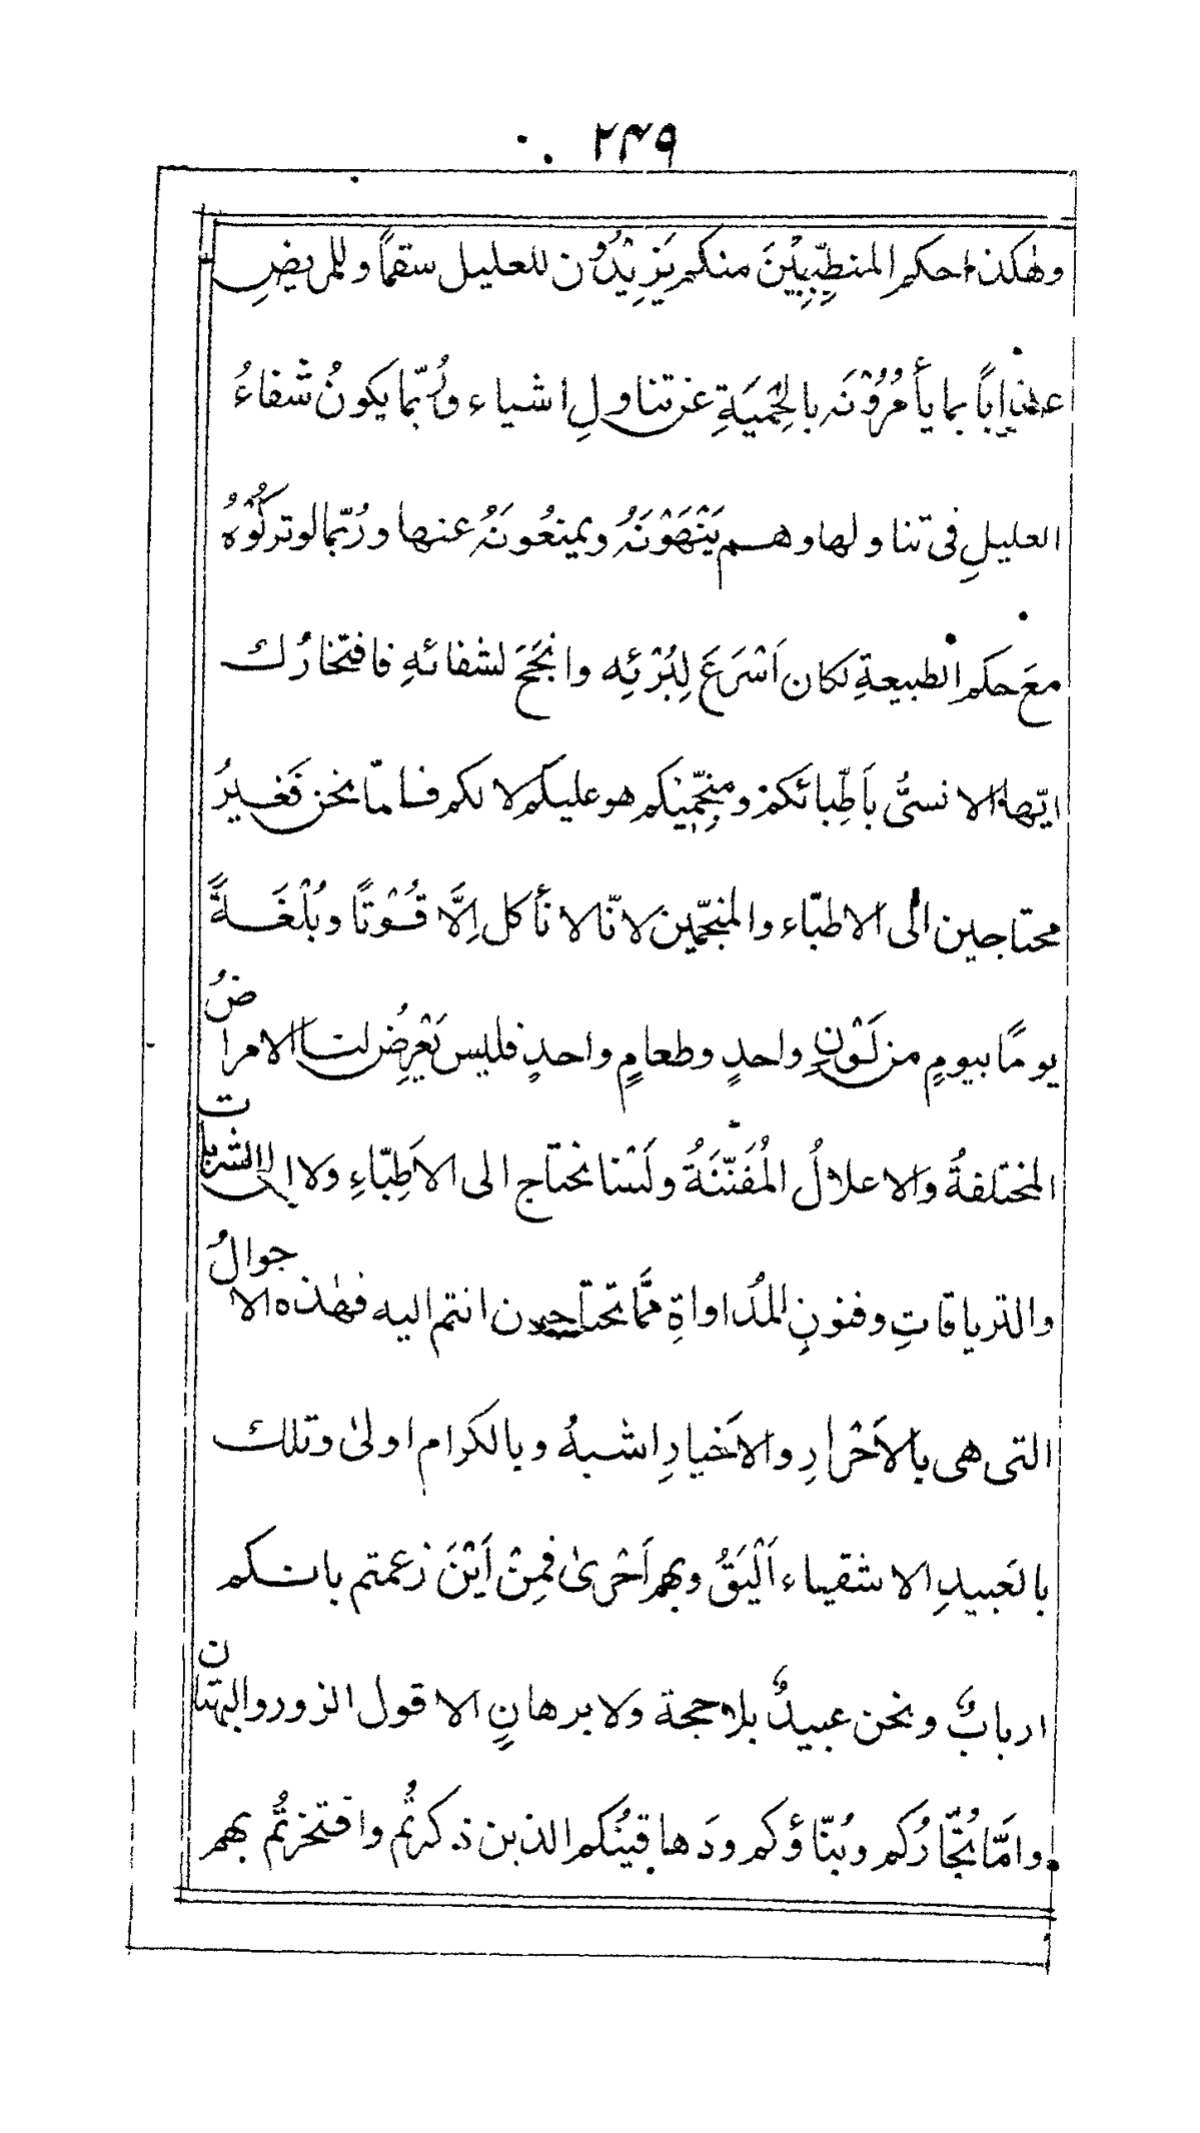 ۲۴۹
وهٰكذا حكم المتطبِّبِيْنَ منكم يَزِيْدُوْن للعليل سقمًا وللمريضِ
عذابًا بما يأمُرُوْنَه بالحِمْيَةِ عن تناولِ اشياء ورُبّما يكونُ شفاءُ
العليلِ فى تناولها وهم يَنْهَوْنَهُ ويمنعُونَهُ عنها ورُبّما لو تركُوْهُ
معَ حكم الطبيعةِ لكان اَسْرَعَ لِبُرْئِه وانجَحَ لشفائهِ فافتخارُك
ايّها الانسىُّ بأَطِبّائكم ومنجِّمِيْكم هو عليكم لا لكم فامّا نحن فَغيرُ
محتاجين الى الاطبّاء والمنجّمين لانّا لا نأكل اِلَّا قُوْتًا وبُلْغَةً
يومًا بيومٍ من لَوْنٍ واحدٍ وطعامٍ واحدٍ فليس يَعْرِضُ لنا الامراضُ
المختلفةُ والاعلالُ المُفَنَّنَةُ ولَسْنا نحتاج الى الاَطِبّاءِ ولا الى الشربات
والترياقاتِ وفنونِ المُداواةِ ممَّا تحتاجون انتم اليه فهٰذه الاحوالُ
التى هى بالاَحْرارِ والاَخيارِ اشبهُ وبالكرام اولىٰ وتلك
بالعَبيدِ الاشقياء اَلْيَقُ وبهم اَحْرىٰ فمِنْ اَيْنَ زعمتم بانكم
اربابٌ ونحن عبيدٌ بلا حجة ولا برهانٍ الا قول الزور والبهتان
وامَّا تُجّارُكم وبُنّاؤكم ودَهاقينُكم الذين ذكرتُم وافتخرتُم بهم